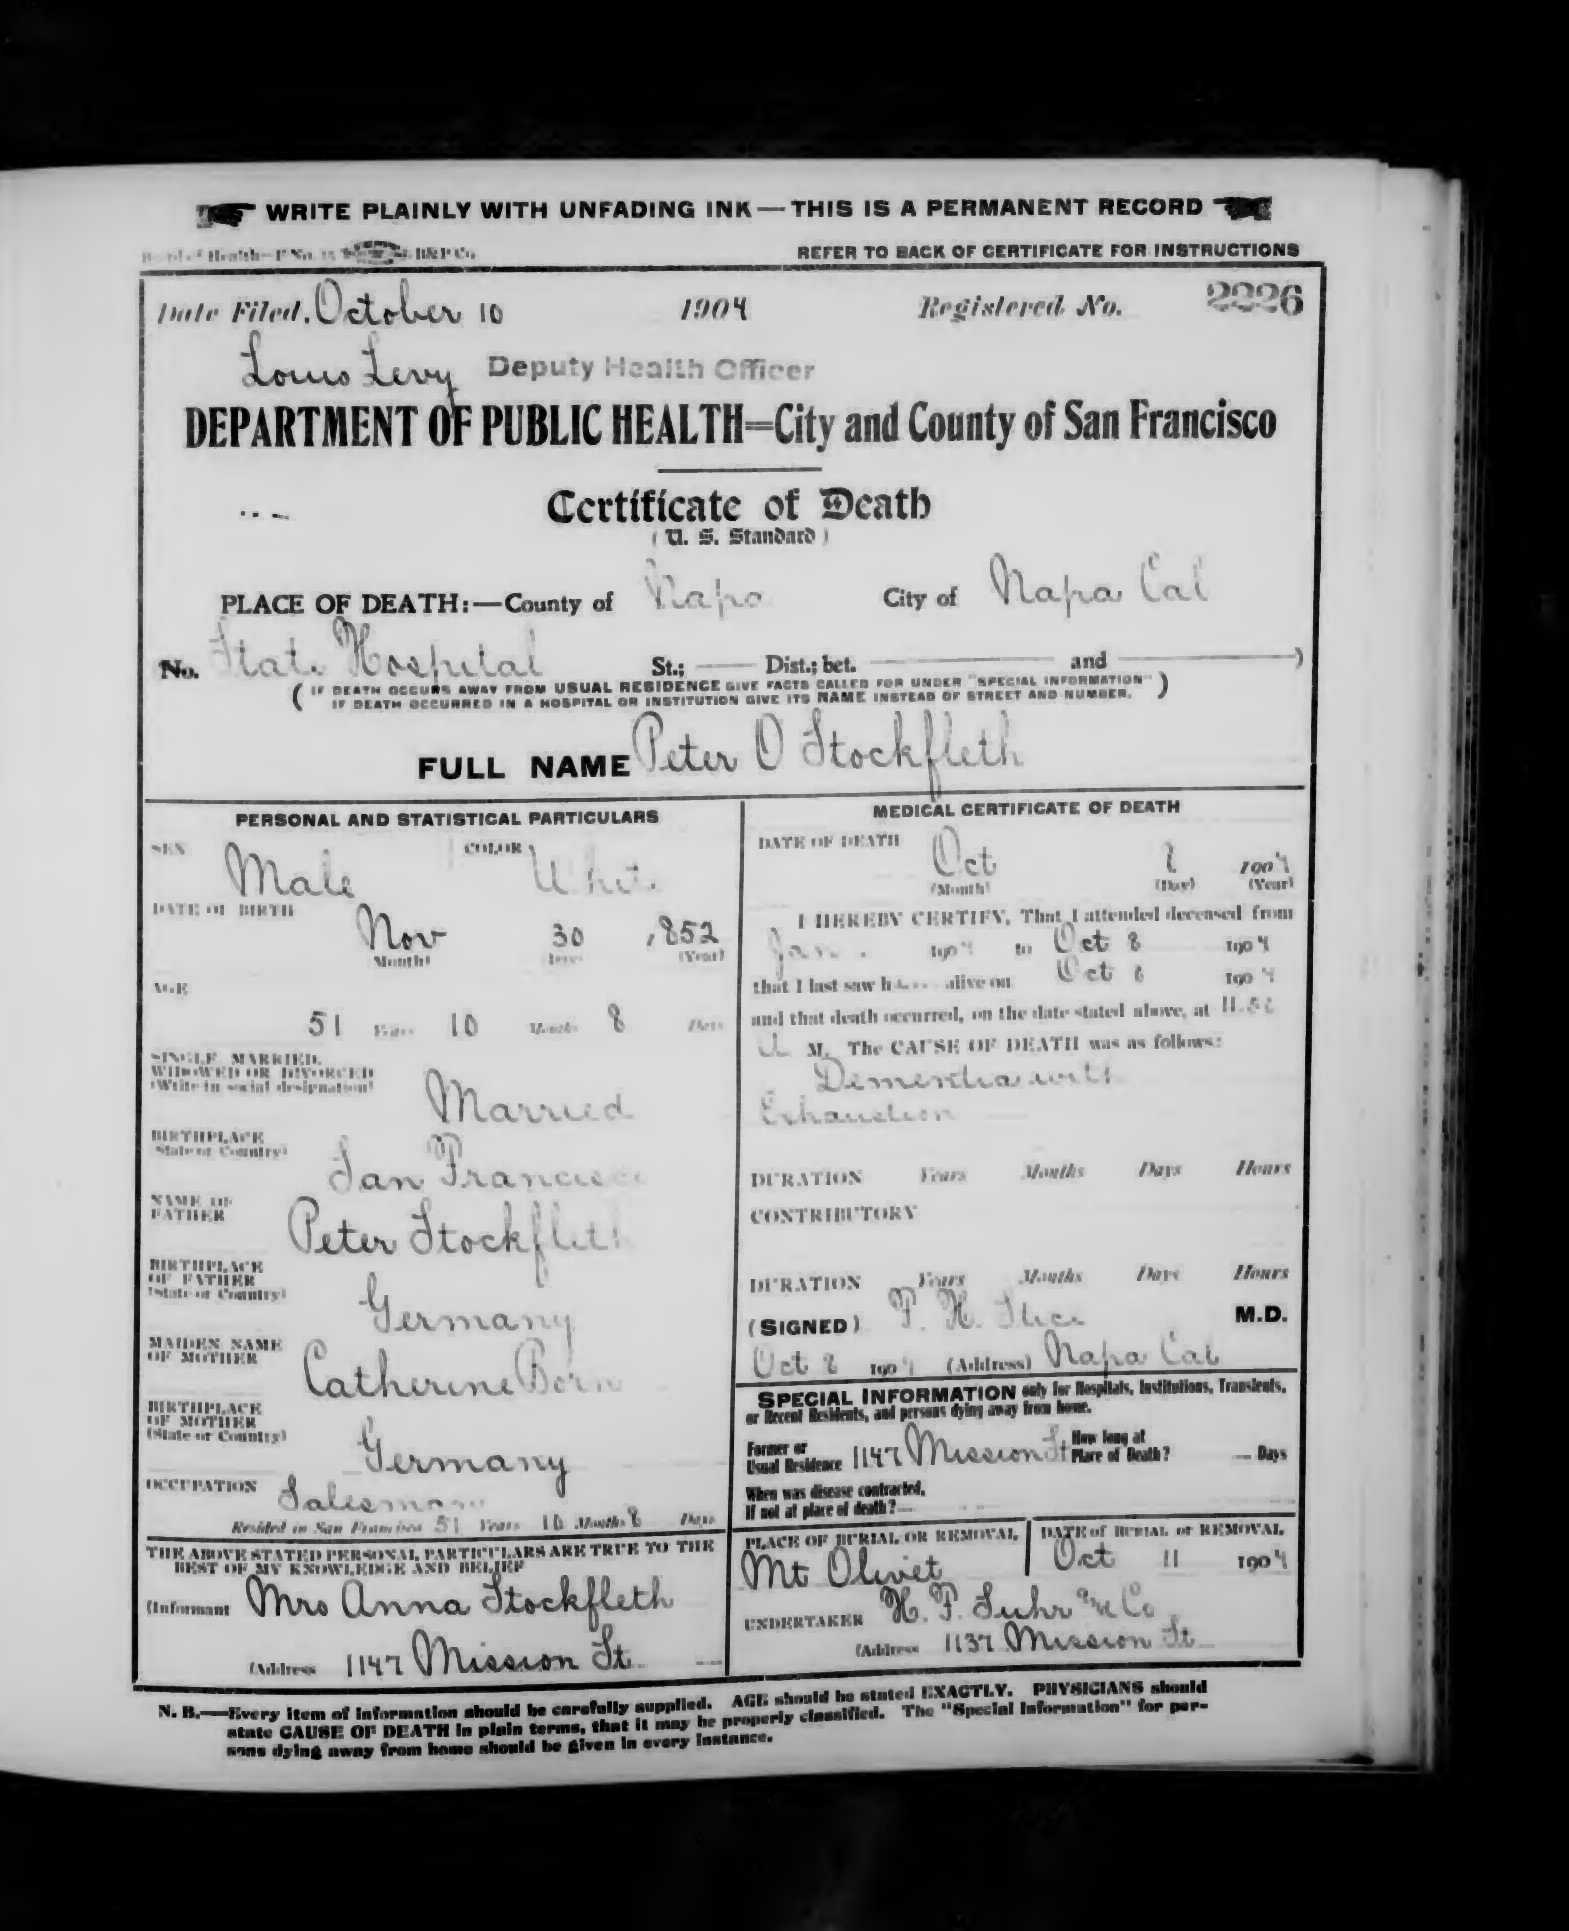 WRITE PLAINLY WITH UNFADING INK — THIS IS A PERMANENT RECORD
Board of Health—F No. 15 B&P Co.
REFER TO BACK OF CERTIFICATE FOR INSTRUCTIONS
Date Filed, October 10 1904 Registered No. 2226
Louis Levy Deputy Health Officer
DEPARTMENT OF PUBLIC HEALTH=City and County of San Francisco
Certificate of Death
(U. S. Standard)
PLACE OF DEATH:—County of Napa City of Napa Cal
No. State Hospital St.; Dist.; bet. and )
( IF DEATH OCCURS AWAY FROM USUAL RESIDENCE GIVE FACTS CALLED FOR UNDER "SPECIAL INFORMATION" )
IF DEATH OCCURRED IN A HOSPITAL OR INSTITUTION GIVE ITS NAME INSTEAD OF STREET AND NUMBER.
FULL NAME Peter O Stockfleth
PERSONAL AND STATISTICAL PARTICULARS
SEX Male COLOR White
DATE OF BIRTH Nov 30 1852
(Month) (Day) (Year)
AGE
51 Years 10 Months 8 Days
SINGLE, MARRIED,
WIDOWED OR DIVORCED
(Write in social designation) Married
BIRTHPLACE
(State or Country) San Francisco
NAME OF
FATHER Peter Stockfleth
BIRTHPLACE
OF FATHER
(State or Country) Germany
MAIDEN NAME
OF MOTHER Catherine Born
BIRTHPLACE
OF MOTHER
(State or Country) Germany
OCCUPATION Salesman
Resided in San Francisco 51 Years 10 Months 8 Days
THE ABOVE STATED PERSONAL PARTICULARS ARE TRUE TO THE
BEST OF MY KNOWLEDGE AND BELIEF
(Informant Mrs Anna Stockfleth
(Address 1147 Mission St
MEDICAL CERTIFICATE OF DEATH
DATE OF DEATH Oct 8 1904
(Month) (Day) (Year)
I HEREBY CERTIFY, That I attended deceased from
Jan. 1904 to Oct 8 1904
that I last saw h alive on Oct 8 1904
and that death occurred, on the date stated above, at 11.
A M. The CAUSE OF DEATH was as follows:
Dementia with
Exhaustion
DURATION Years Months Days Hours
CONTRIBUTORY
DURATION Years Months Days Hours
(SIGNED) M.D.
Oct 8 1904 (Address) Napa Cal
SPECIAL INFORMATION only for Hospitals, Institutions, Transients,
or Recent Residents, and persons dying away from home.
Former or
Usual Residence 1147 Mission St How long at
Place of Death? — Days
When was disease contracted,
If not at place of death? —
PLACE OF BURIAL OR REMOVAL DATE of BURIAL or REMOVAL
Mt Olivet Oct 11 1904
UNDERTAKER H. F. Suhr and Co
(Address 1137 Mission St
N. B.—Every item of information should be carefully supplied. AGE should be stated EXACTLY. PHYSICIANS should
state CAUSE OF DEATH in plain terms, that it may be properly classified. The "Special Information" for per-
sons dying away from home should be given in every instance.